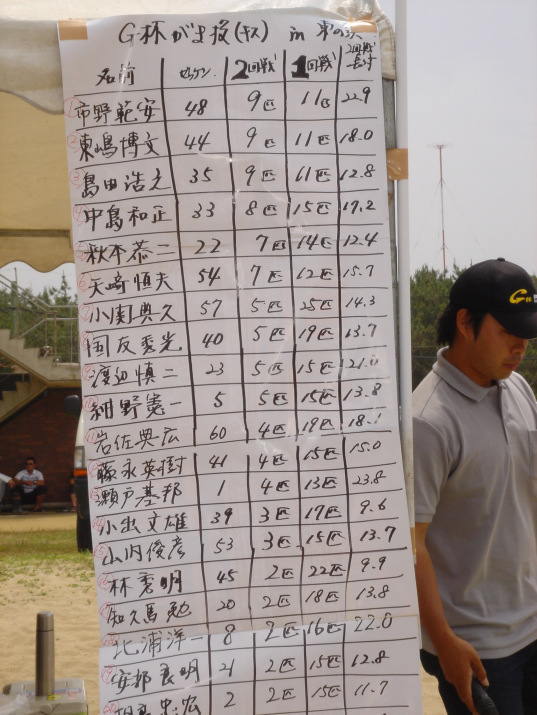 G杯がま投(キス) in 東の浜
名前 ゼッケン 2回戦 1回戦 2回戦
① 市野範安 48 9匹 11匹 22.9
② 東嶋博文 44 9匹 11匹 18.0
③ 島田浩之 35 9匹 11匹 12.8
④ 中島和正 33 8匹 15匹 17.2
⑤ 秋本恭二 22 7匹 14匹 12.4
⑥ 矢崎恒夫 54 7匹 12匹 15.7
⑦ 小関典久 57 5匹 25匹 14.3
⑧ 国友秀光 40 5匹 19匹 13.7
⑨ 渡辺慎二 23 5匹 15匹 21.0
⑩ 紺野憲一 5 5匹 15匹 13.8
⑪ 岩佐典広 60 4匹 19匹 18.1
⑫ 藤永英樹 41 4匹 15匹 15.0
⑬ 瀬戸基邦 1 4匹 13匹 23.8
⑭ 小出文雄 39 3匹 17匹 9.6
⑮ 山内俊彦 53 3匹 15匹 13.7
⑯ 林秀明 45 2匹 22匹 9.9
⑰ 知久馬勉 20 2匹 18匹 13.8
⑱ 北浦洋一 8 2匹 16匹 22.0
⑲ 安部良明 21 2匹 15匹 12.8
⑳ 忠宏 2 2匹 15匹 11.7